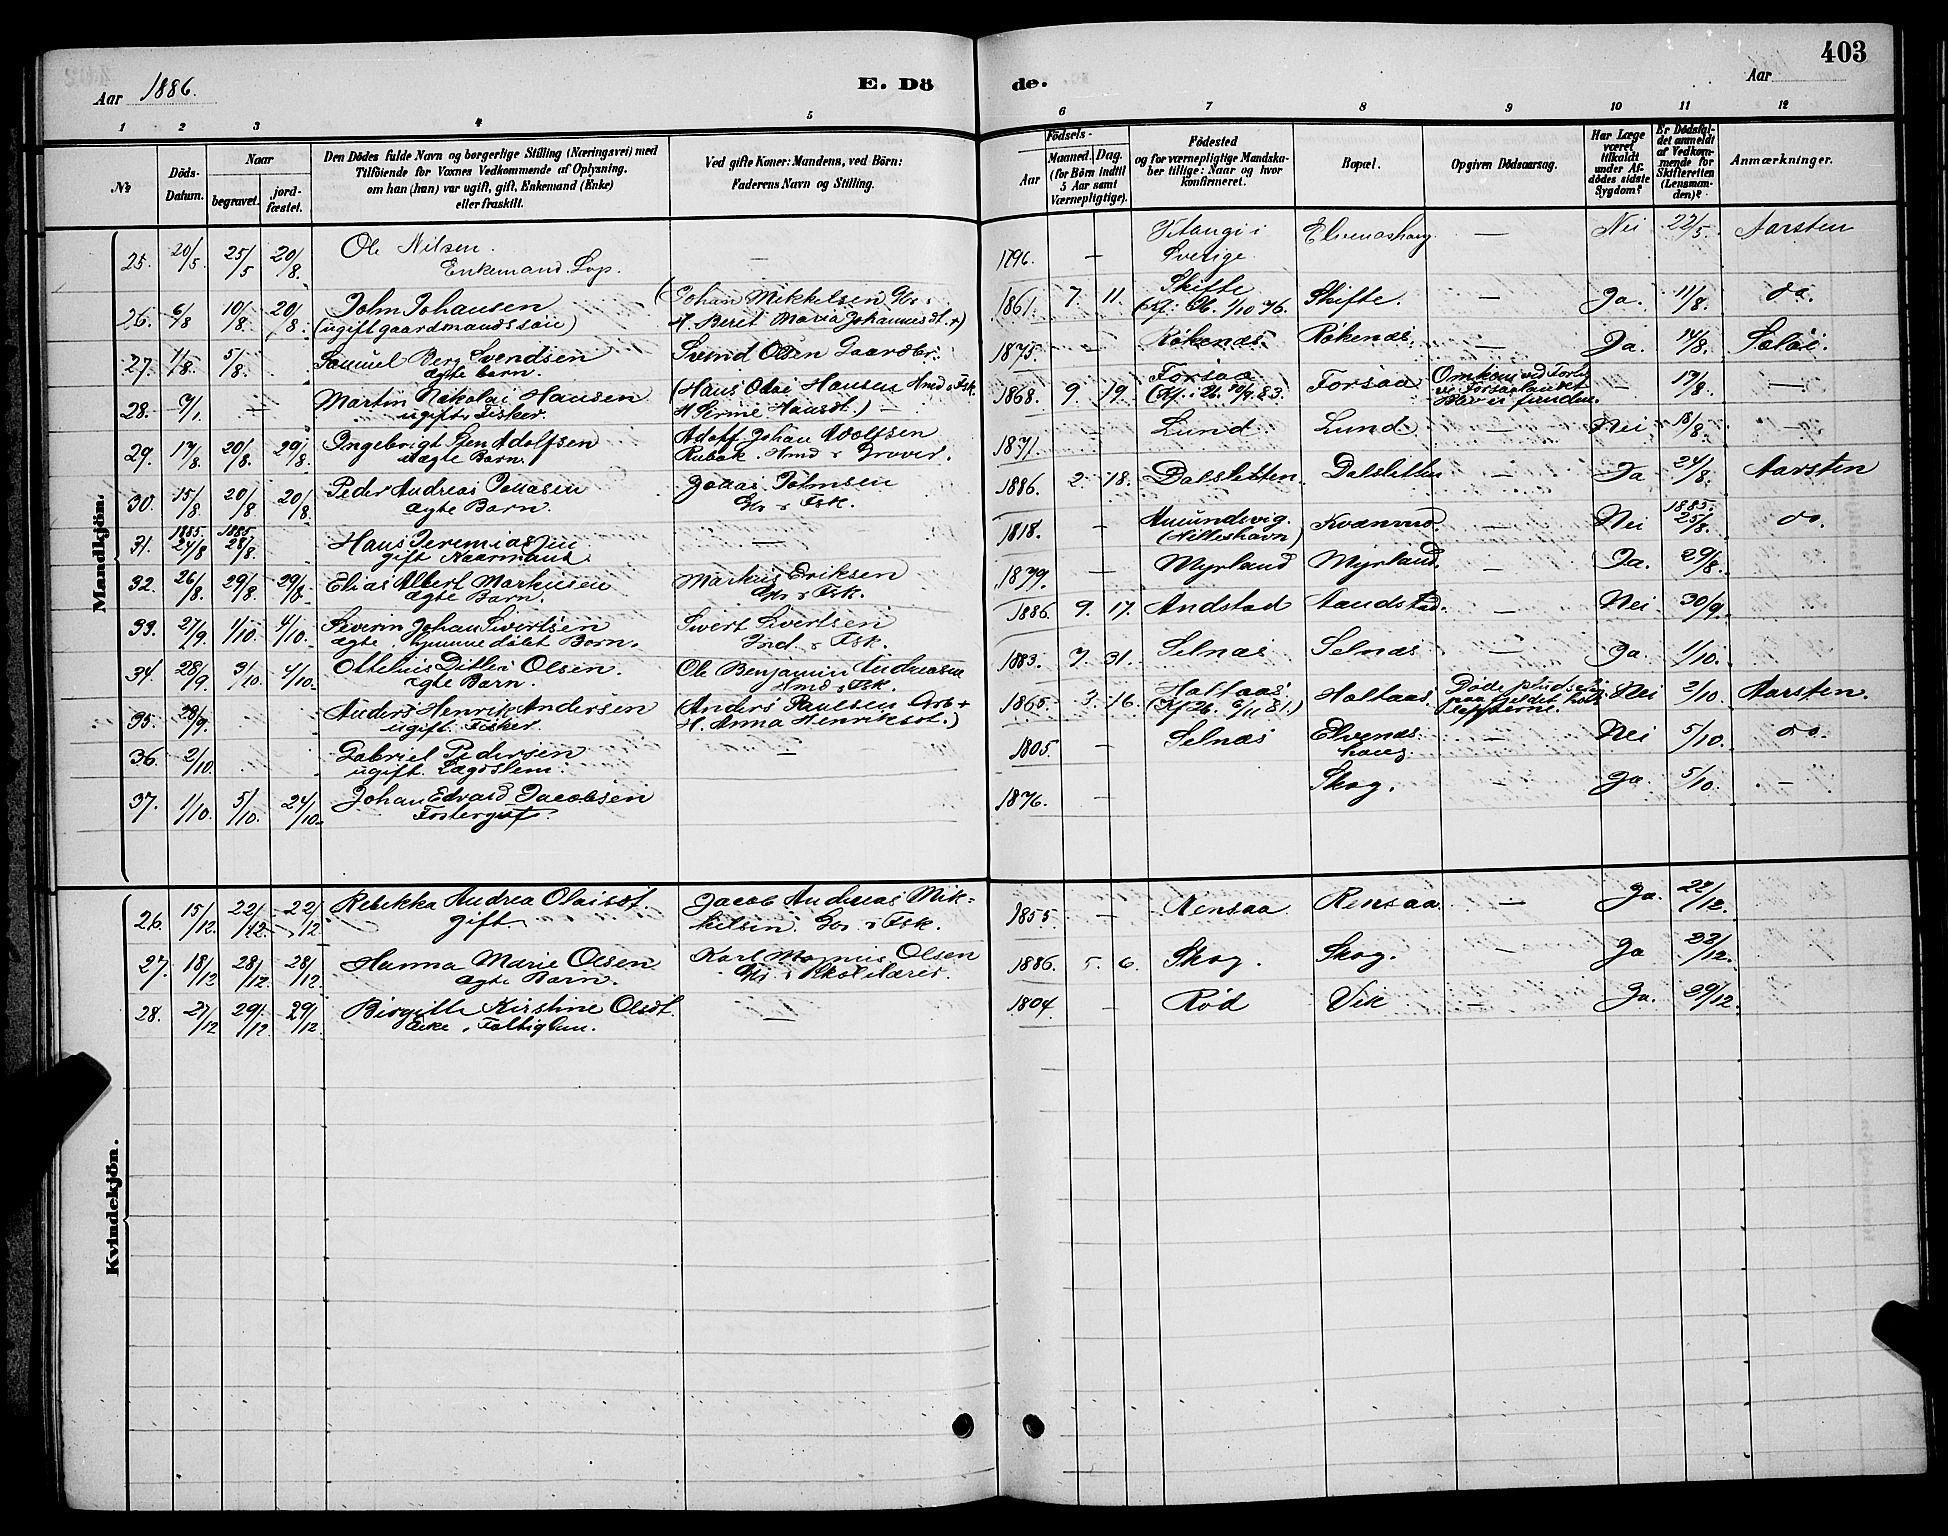 403
Aar 1886.
E. Dö de.
Aar
1 2 3 4 5 6 7 8 9 10 11 12
No
Döds-Datum.
Naar
begravet.
jord-fæstet.
Den Dödes fulde Navn og borgerlige Stilling (Næringsvei) med
Tilföiende for Voxnes Vedkommende af Oplysning,
om han (hun) var ugift, gift, Enkemand (Enke)
eller fraskilt.
Ved gifte Koner: Mandens, ved Börn:
Faderens Navn og Stilling.
Födsels-
Aar
Maaned. Dag.
(for Börn indtil
5 Aar samt
Værnepligtige).
Födested
og for værnepligtige Mandska-
ber tillige: Naar og hvor
konfirmeret.
Bopæl.
Opgiven Dödsaarsag.
Har Læge
været
tilkaldt
under Af-
dödes sidste
Sygdom?
Er Dödsfal-
det anmeldt
af Vedkom-
mende for
Skifteretten
(Lensman-
den)?
Anmærkninger.
Mandkjön.
25. 20/5 25/5 20/8. Ole Nilsen. — 1796. — Vitangi i Elvenæshaug — Nei 22/5. Aarsten
Enkemand Lap. Sverige.
26. 6/8 10/8. 20/8. John Johansen (Johan Mikkelsen Gbr. 1861. 7. 11. Skifte Skifte. — Ja. 11/8. do.
(ugift gaardmandssøn) H. Beret Maria Johannesdt. +) (Kf. Ib. 1/10 76.
27. 1/8. 5/8. Samuel Berg Svendsen Svend Olsen Gaardbr. 1875. — Røkenæs. Røkenæs. — Ja. 14/8. Sæløi.
ægte barn.
28. 9/1. — Martin Nikolai Hansen (Hans Olai Hansen Hmd & Fsk. 1868. 9. 19. Forsaa Forsaa Omkom ved Forlis — 17/8. —
ugift, Fisker. H. Serine Hansdt.) — (Kf. i Ib. 30/9. 83.
29. 17/8. 20/8. 29/8. Ingebrigt Adolfsen Adolf Johan Adolfsen 1871. Lund Lund. — Nei 18/8. —
uægte Barn. Kubak. Hmd & Graver.
30. 15/8 20/8 20/8. Peder Andreas Jonasen Jonas Johnsen 1886. 2. 18. Dalsletten. Dalsletten — Ja 24/8. Aarsten
ægte Barn. Gbr. & Fsk.
31. 1885. 24/8 1885. 28/8. Hans Jeremiassen — 1818. — Amundsvig. Kvannvid. — Nei 1885. 25/8. do.
gift Kaarmand. (Nilleshavn)
32. 26/8. 29/8. 29/8. Elias Albert Markusen Markus Eriksen 1879. Myrland Myrland. Ja. 29/8.
ægte Barn. Gbr. & Fsk.
33. 27/9. 1/10. 4/10. Severin Johan Sivertsen Sivert Sivertsen 1886 9. 17. Andstad Aandstad. — Nei 30/9.
ægte, hjemmedøbt Barn. Ind. & Fsk.
34. 28/9. 3/10. 4/10. Ottelius Ditlev Olsen. Ole Benjamin Andreasen 1883. 7. 31. Selnæs Selnæs — Ja. 1/10.
ægte Barn. Hmd & Fsk.
35. 28/9. Anders Henrik Andersen (Anders Paulsen Arb + 1865. 3. 16. Haltaas. Haltaas Døde pludselig Nei 2/10. Aarsten.
ugift Fisker. H. Anna Henriksdt.) (Kf Ib. 6/11 81.)
36. 2/10. Gabriel Pedersen — 1805. — Selnæs Elvenæs- — Nei 5/10. do.
ugift. Lægdslem. haug
37. 1/10. 5/10. 24/10. Johan Edvard Jacobsen 1876. — Skog. — Ja 5/10. —
Fostergut.
Kvindekjön.
26. 15/12. 22/12. 22/12 Rebekka Andrea Olaisdt. Jacob Andreas Mik- 1855. — Rensaa Rensaa — Ja. 22/12.
gift kelsen. Gbr. & Fsk.
27. 18/12 28/12. 28/12. Hanna Marie Olsen Karl Magnus Olsen 1886. 5. 6. Skog. Skog. — Ja 23/12.
ægte Barn. Gbr. & Skolelærer.
28. 27/12 29/12. 29/12. Birgitte Kirstine Olsdt. — 1804. — Rød Vik — Ja. 29/12.
Enke, Fattiglem.